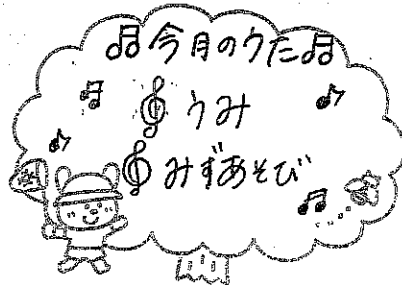 ♫今月のうた♫
うみ
みずあそび